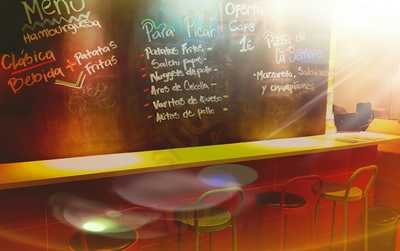 Menú
Hamburguesa
Clásica
Bebida + Patatas
Fritas
Para Picar
Patatas Fritas -
Salchi papas -
Nuggets de pollo -
Aros de Cebolla -
Varitas de queso -
Alitas de pollo -
Oferta
Cafe
1€
Pizza de
la Semana
- Mozzarela, Salchichas
y champiñones